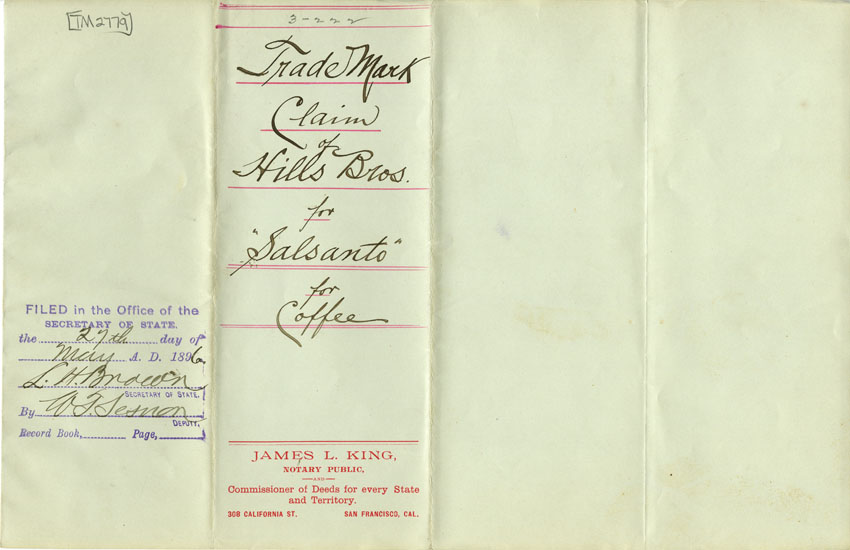 [TM2779]
3-222
Trade Mark
Claim
of
Hills Bros.
for
"Salsanto"
for
Coffee
FILED in the Office of the
SECRETARY OF STATE.
the 27th day of
May A. D. 1896
L. H. Brown
SECRETARY OF STATE.
By W. T. Sesnon
DEPUTY.
Record Book, Page,
JAMES L. KING,
NOTARY PUBLIC,
AND
Commissioner of Deeds for every State
and Territory.
308 CALIFORNIA ST. SAN FRANCISCO, CAL.